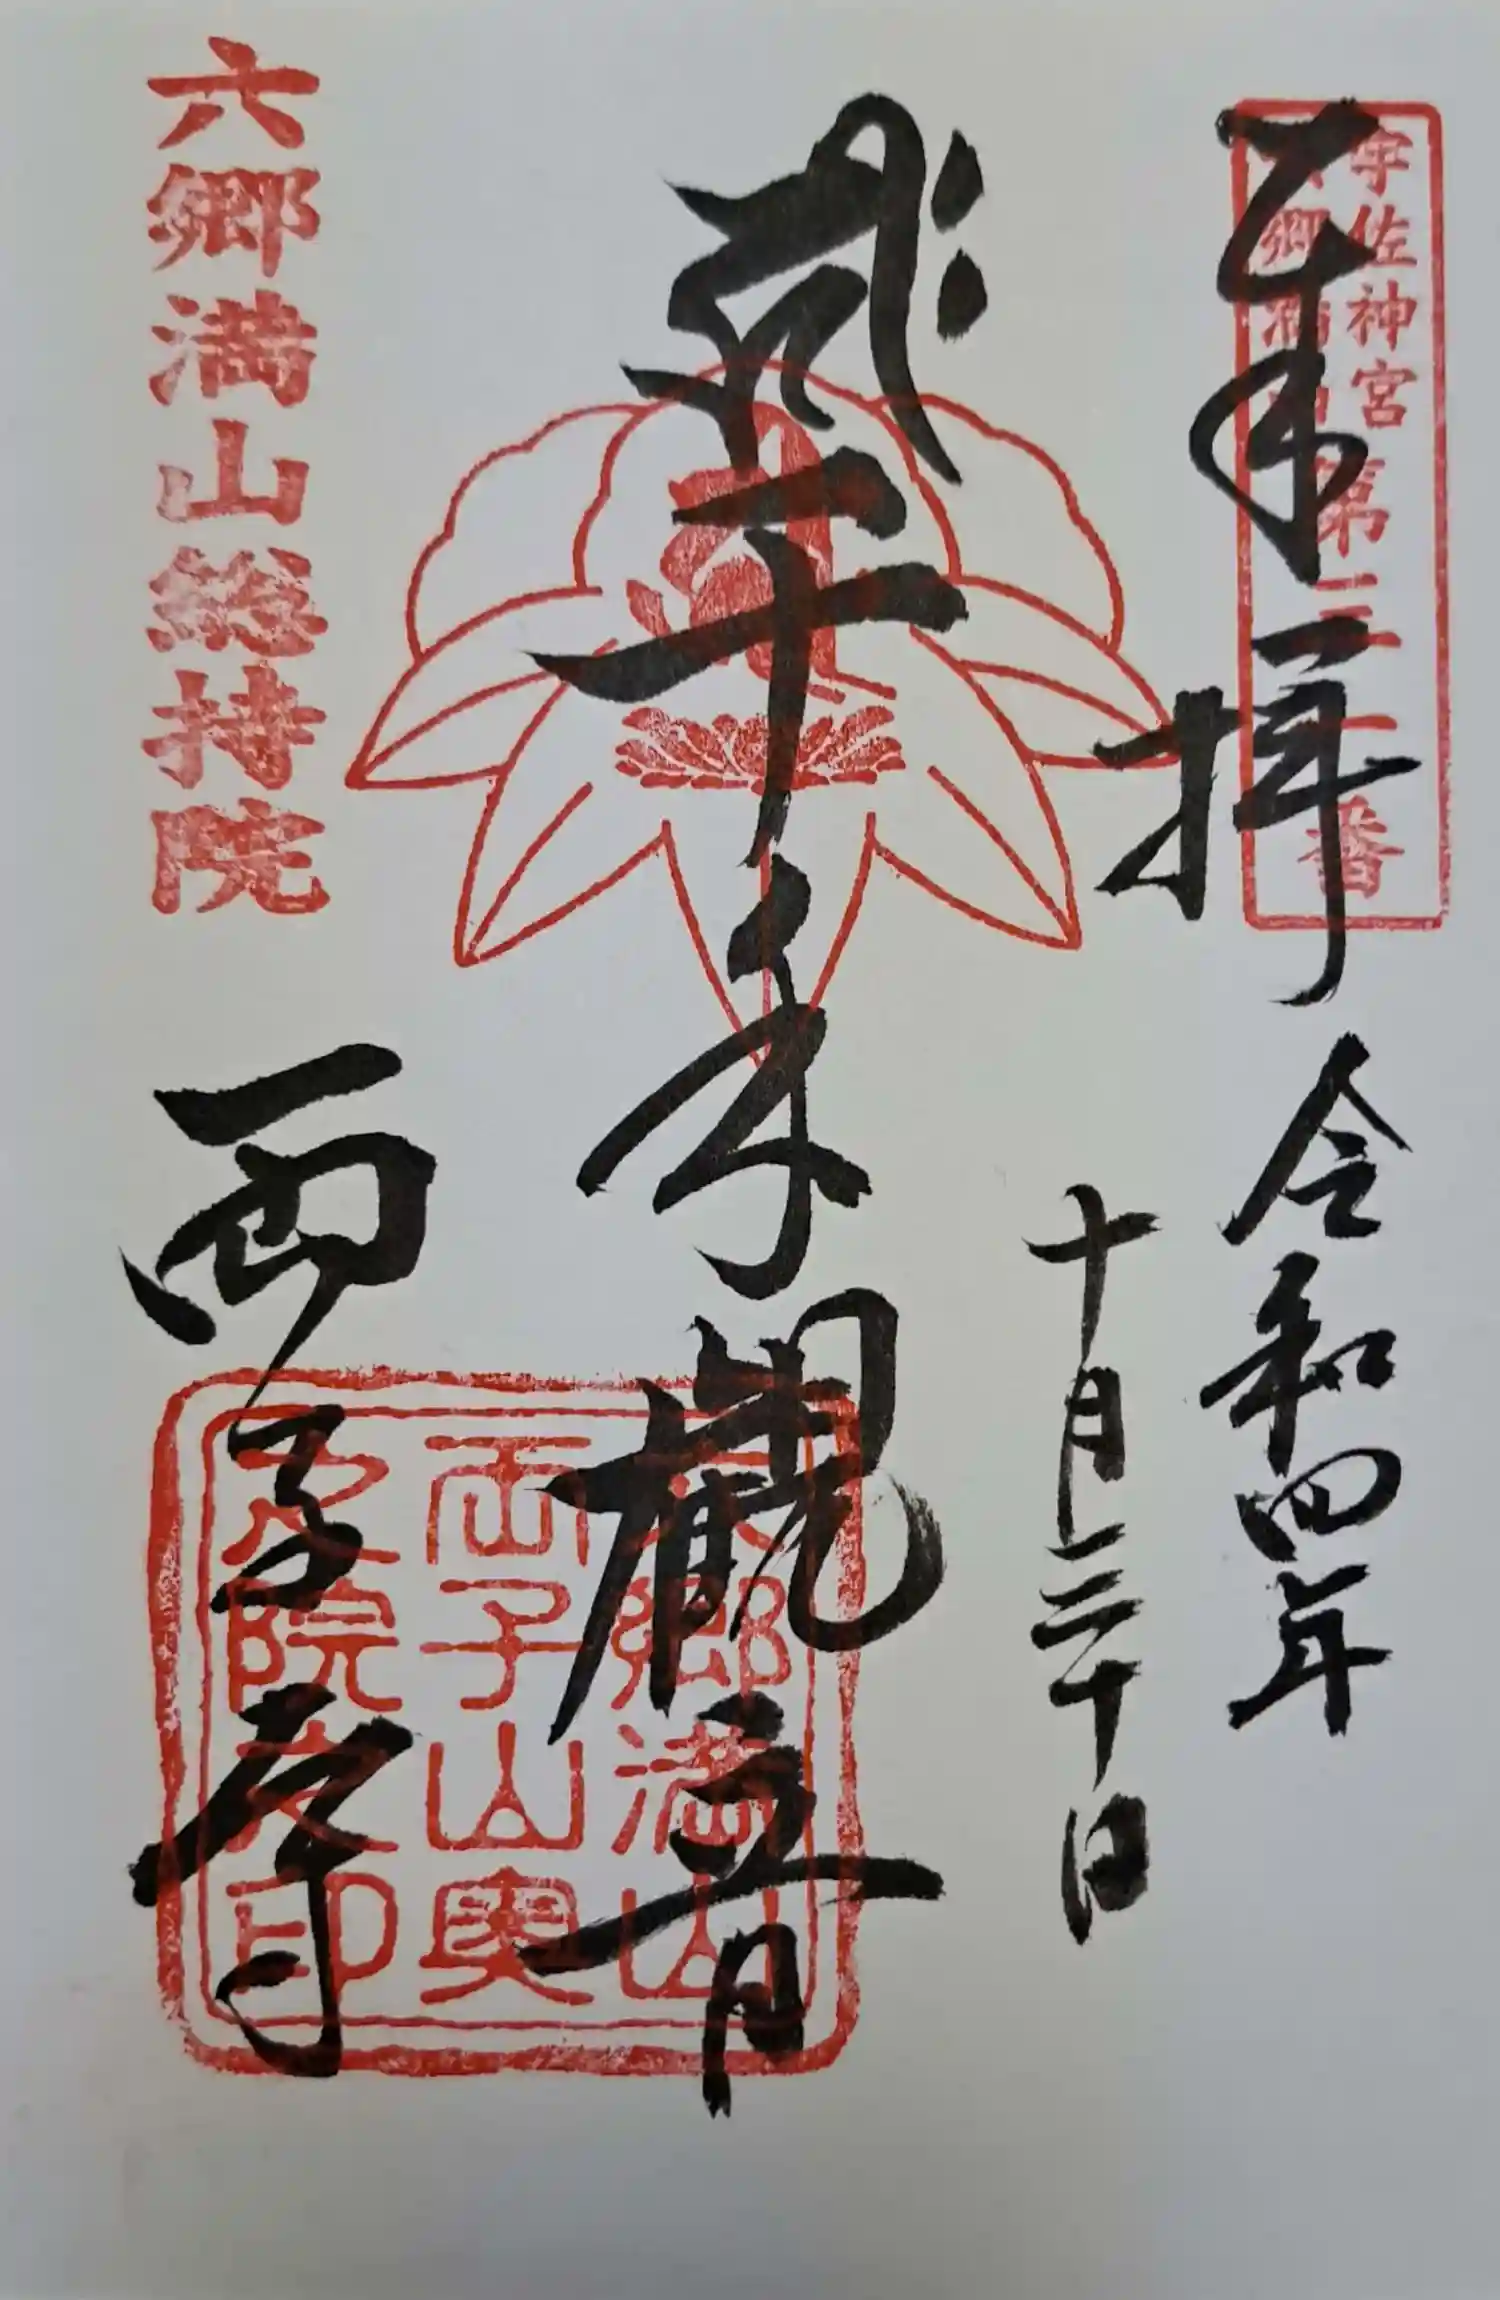 奉拝
宇佐神宮
六郷満山
番
令和四年
十月三十日
千手観音
六郷満山
両子山奥
之院之印
六郷満山総持院
両子寺